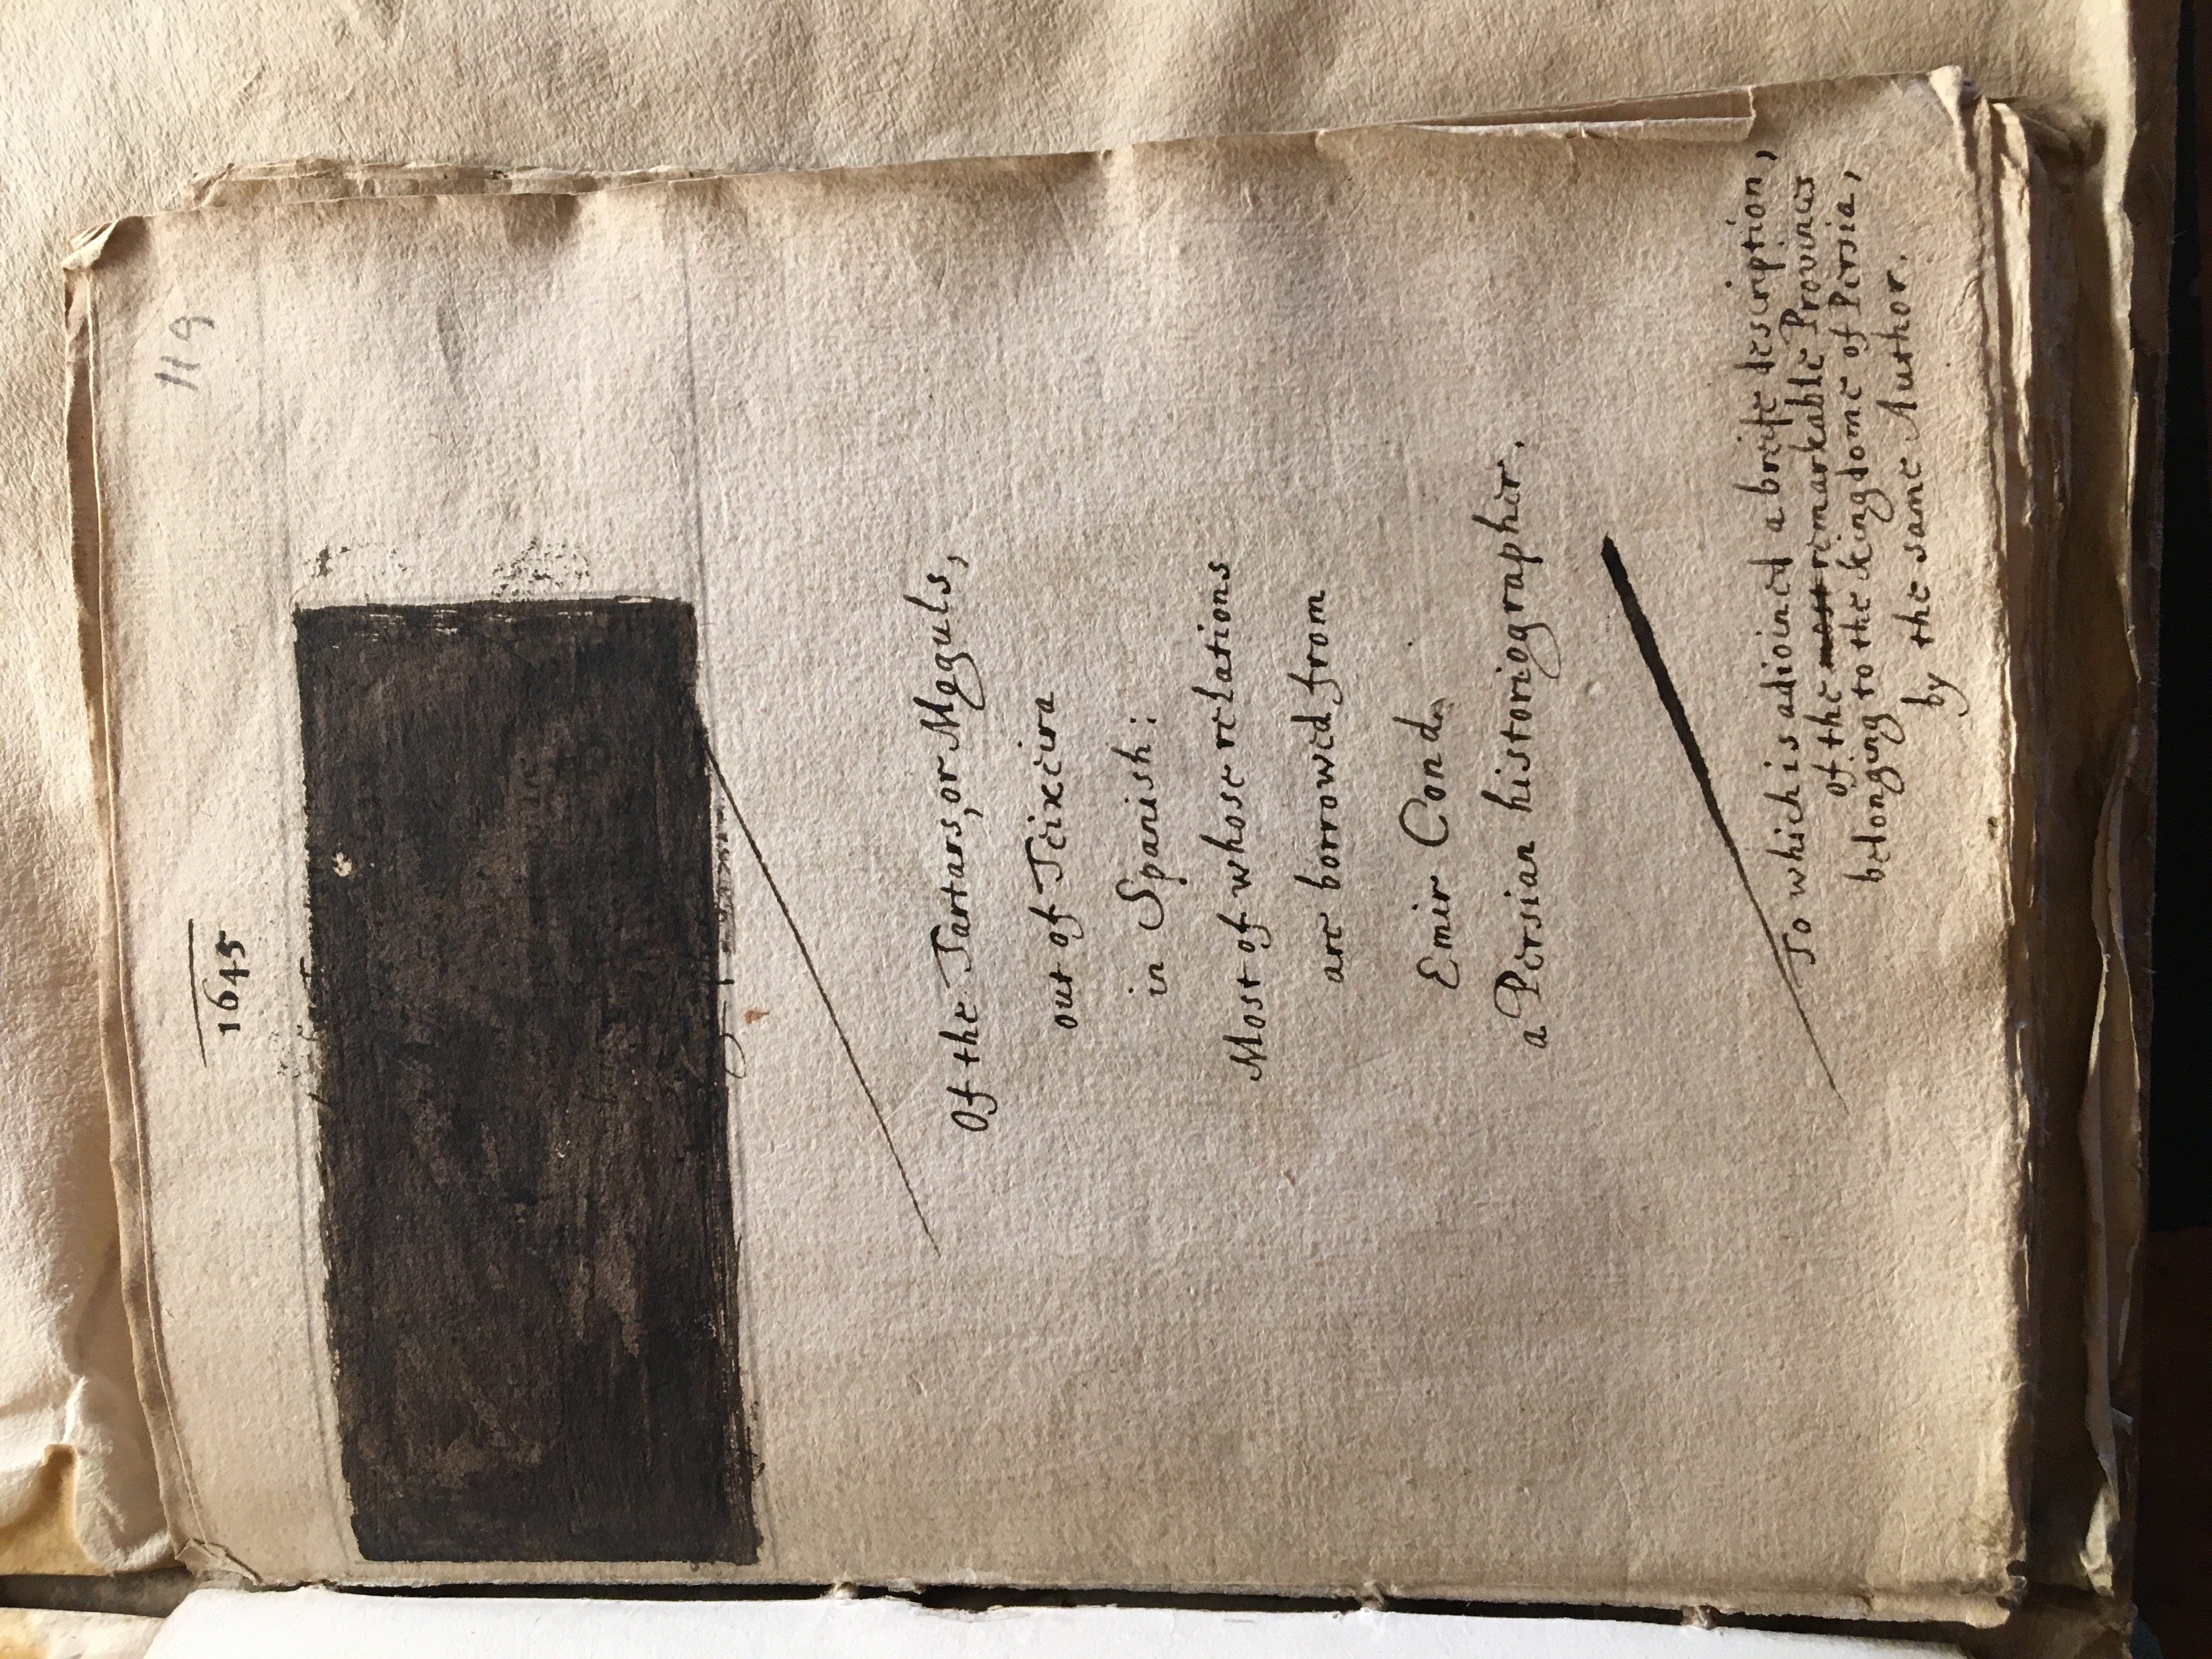 119
1645
Of the Tartars, or Moguls,
out of Teixeira
in Spanish:
Most of whose relations
are borrowed from
Emir Cond.
a Persian historiographer.
To which is adioined a breife description,
of the most remarkable Provinces
belonging to the kingdome of Persia,
by the same Author.